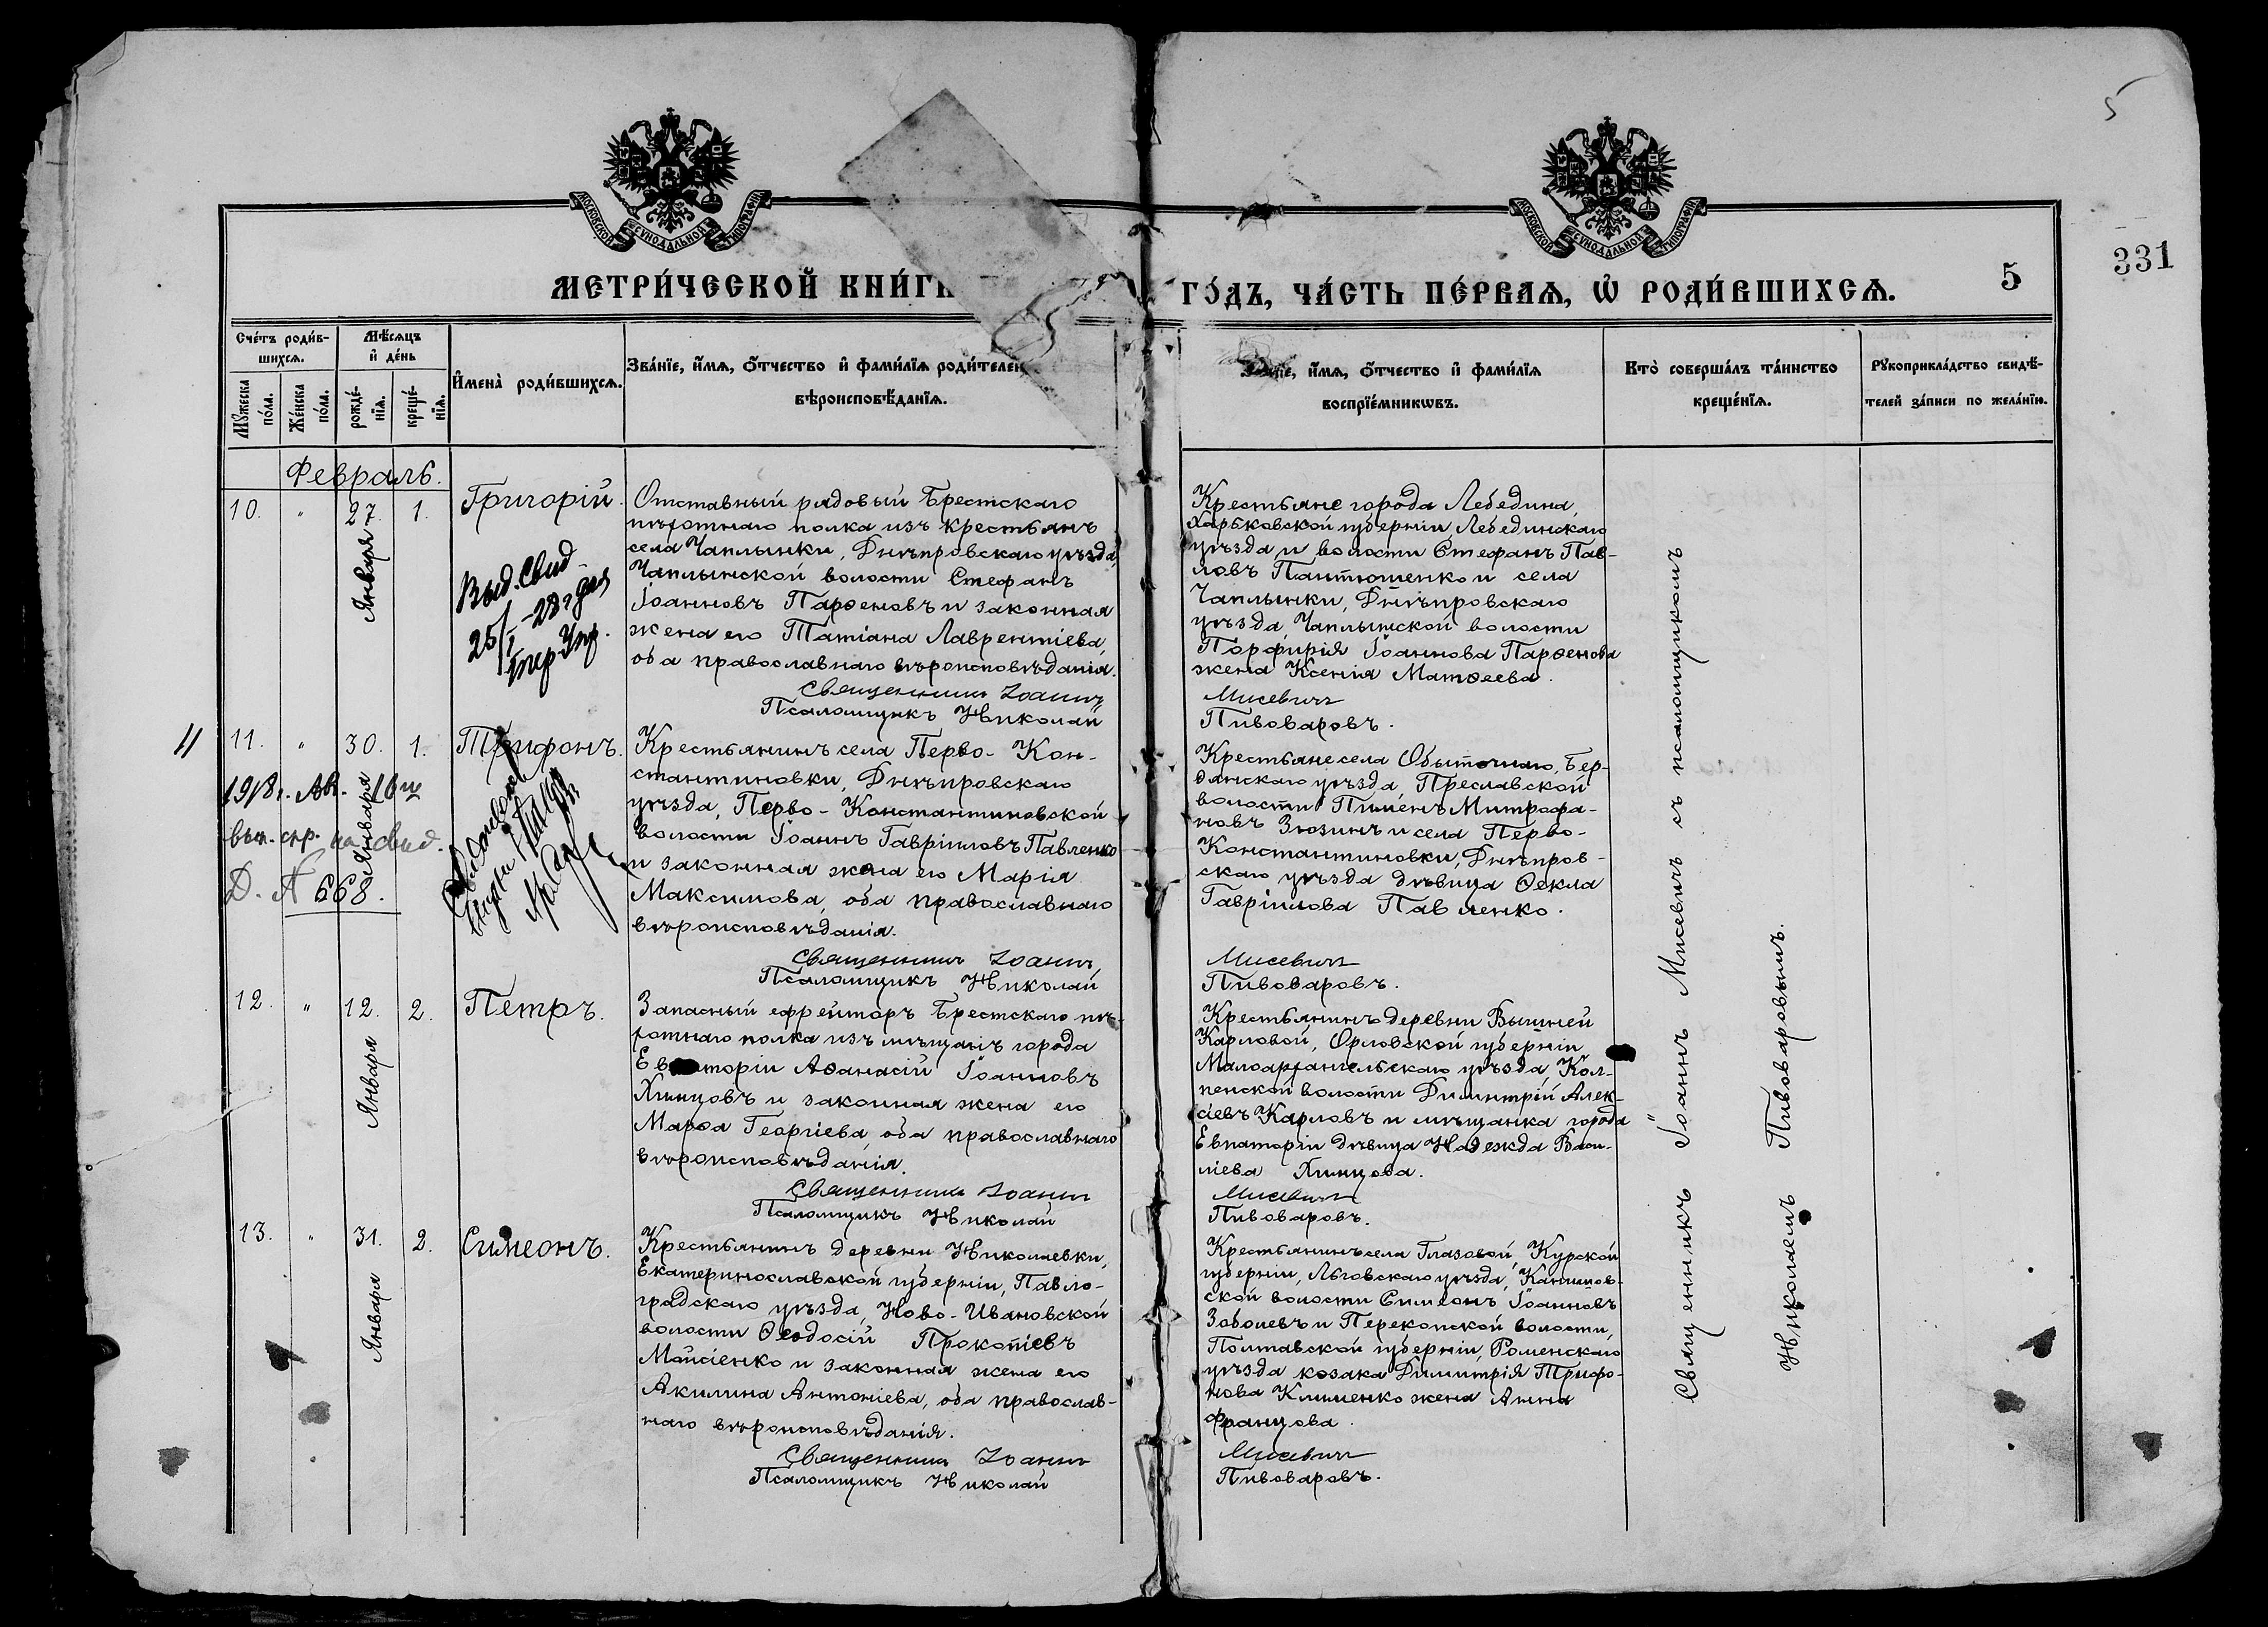 5
331
МОСКОВСКОЙ СѴНОДАЛЬНОЙ ТИПОГРАФІИ
МОСКОВСКОЙ СѴНОДАЛЬНОЙ ТИПОГРАФІИ
МЕТРИ́ЧЕСКОЙ КНИ́ГИ
ГО́ДЪ, ЧА́СТЬ ПЕ́РВАѦ, Ѡ҆ РОДИ́ВШИХСѦ.
5
Сче́тъ роди́в-
шихсѧ.
Мѣ́сѧцъ
и҆ де́нь
Мꙋ́жеска
по́ла.
Же́нска
по́ла.
рожде́-
нїѧ.
креще́-
нїѧ.
И҆мена̀ роди́вшихсѧ.
Зва́нїе, и҆́мѧ, ѻ҆́тчество и҆ фами́лїѧ роди́телей
вѣроисповѣ́данїѧ.
и҆́мѧ, ѻ҆́тчество и҆ фами́лїѧ
воспрїе́мникѡвъ.
Кто̀ соверша́лъ та́инство
креще́нїѧ.
Рꙋкоприкла́дство свидѣ́-
телей за́писи по жела́нїю.
Февраль.
10.
"
27.
Января
1.
Григорій.
Выд. Свид
25/I - 28 г для
Отставный рядовый Брестскаго
пѣхотнаго полка изъ крестьянъ
села Чаплынки, Днѣпровскаго уѣзда,
Чаплынской волости Стефанъ
Іоанновъ Парѳеновъ и законная
жена его Татіана Лаврентіева,
оба православнаго вѣроисповѣданія.
Священникъ Іоаннъ
Псаломщикъ Николай
Крестьяне города Лебедина,
Харьковской губерніи Лебединскаго
уѣзда и волости Стефанъ Пав-
ловъ Пантюшенко и села
Чаплынки, Днѣпровскаго
уѣзда, Чаплынской волости
Порфирія Іоаннова Парѳенова
жена Ксенія Матѳеева.
Мисевичъ
Пивоваровъ.
11
11.
"
30.
Января
1.
Трифонъ.
1918 г. Ав. 16 ч
вып. спр. на свид.
Д. № 668.
Крестьянинъ села Перво-Кон-
стантиновки, Днѣпровскаго
уѣзда, Перво-Константиновской
волости Іоаннъ Гавріиловъ Павленко
и законная жена его Марія
Максимова, оба православнаго
вѣроисповѣданія.
Священникъ Іоаннъ
Псаломщикъ Николай
Крестьяне села Обыточнаго, Бер-
дянскаго уѣзда, Преславской
волости Пименъ Митрофа-
новъ Зюзинъ и села Перво-
Константиновки, Днѣпров-
скаго уѣзда дѣвица Ѳекла
Гавріилова Павленко.
Мисевичъ
Пивоваровъ.
12.
"
12.
Января
2.
Петръ.
Запасный ефрейторъ Брестскаго пѣ-
хотнаго полка изъ мѣщанъ города
Евпаторіи Аѳанасій Іоанновъ
Химцовъ и законная жена его
Марѳа Георгіева, оба православнаго
вѣроисповѣданія.
Священникъ Іоаннъ
Псаломщикъ Николай
Крестьянинъ деревни Вышней
Карловой, Орловской губерніи
Малоархангельскаго уѣзда, Кол-
пенской волости Димитрій Алек-
сіевъ Карловъ и мѣщанка города
Евпаторіи дѣвица Надежда Васи-
ліева Химцова.
Мисевичъ
Пивоваровъ.
13.
"
31.
Января
2.
Симеонъ.
Крестьянинъ деревни Николаевки,
Екатеринославской губерніи, Павло-
градскаго уѣзда, Ново-Ивановской
волости Ѳеодосій Прокопіевъ
Моисіенко и законная жена его
Акилина Антоніева, оба православ-
наго вѣроисповѣданія.
Священникъ Іоаннъ
Псаломщикъ Николай
Крестьянинъ села Глазовой, Курской
губерніи, Льговскаго уѣзда,
ской волости Симеонъ Іоанновъ
Зоболевъ и Перекопской волости,
Полтавской губерніи, Роменскаго
уѣзда козака Димитрія Трифо-
нова Клименко жена Анна
Францова.
Мисевичъ
Пивоваровъ.
Священникъ Іоаннъ Мисевичъ съ псаломщикомъ
Николаемъ Пивоваровымъ.